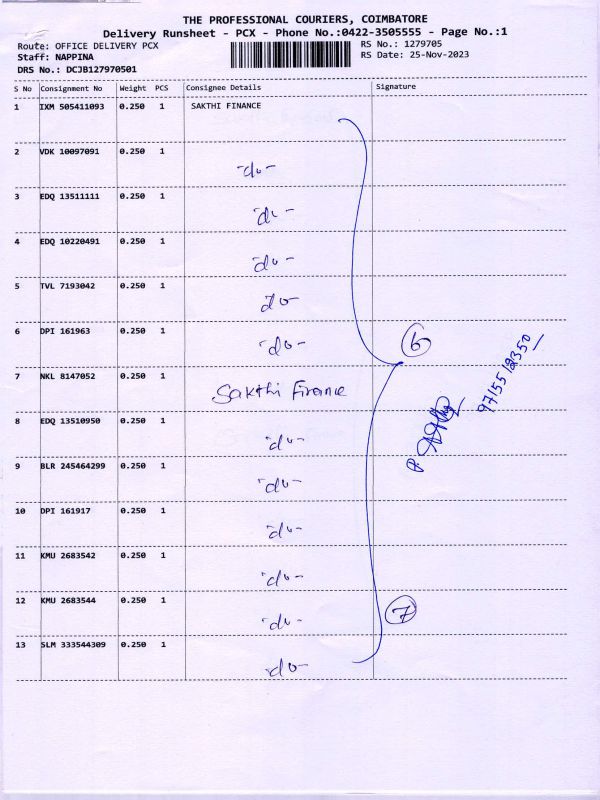 THE PROFESSIONAL COURIERS, COIMBATORE
Delivery Runsheet - PCX - Phone No.:0422-3505555 - Page No.:1
Route: OFFICE DELIVERY PCX RS No.: 1279705
Staff: NAPPINA RS Date: 25-Nov-2023
DRS No.: DCJB127970501
S No Consignment No Weight PCS Consignee Details Signature
1 IXM 505411093 0.250 1 SAKTHI FINANCE
2 VDK 10097091 0.250 1
-do-
3 EDQ 13511111 0.250 1
-do-
4 EDQ 10220491 0.250 1
-do-
5 TVL 7193042 0.250 1
do-
6 DPI 161963 0.250 1
-do-
6
7 NKL 8147052 0.250 1
Sakthi Finance
9715512350
8 EDQ 13510950 0.250 1
-do-
9 BLR 245464299 0.250 1
-do-
10 DPI 161917 0.250 1
-do-
11 KMU 2683542 0.250 1
-do-
12 KMU 2683544 0.250 1
-do-
7
13 SLM 333544309 0.250 1
-do-